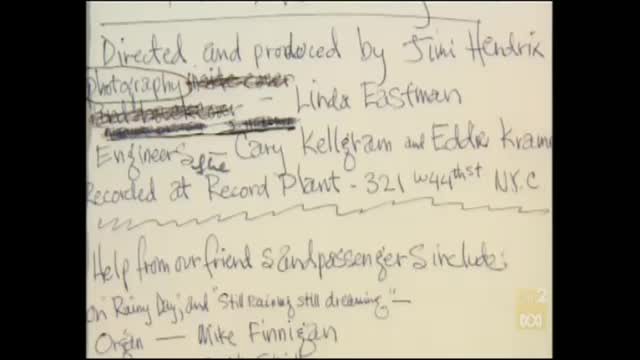 Directed and produced by Jimi Hendrix
photography inside cover
and back cover - Linda Eastman
Engineers, Gary Kellgram and Eddie Kram
Recorded at Record Plant - 321 w 44th st N.Y.C
Help from our friends and passengers include;
on "Rainy Day", and "Still raining still dreaming" —
Organ — Mike Finnigan
2
ABC